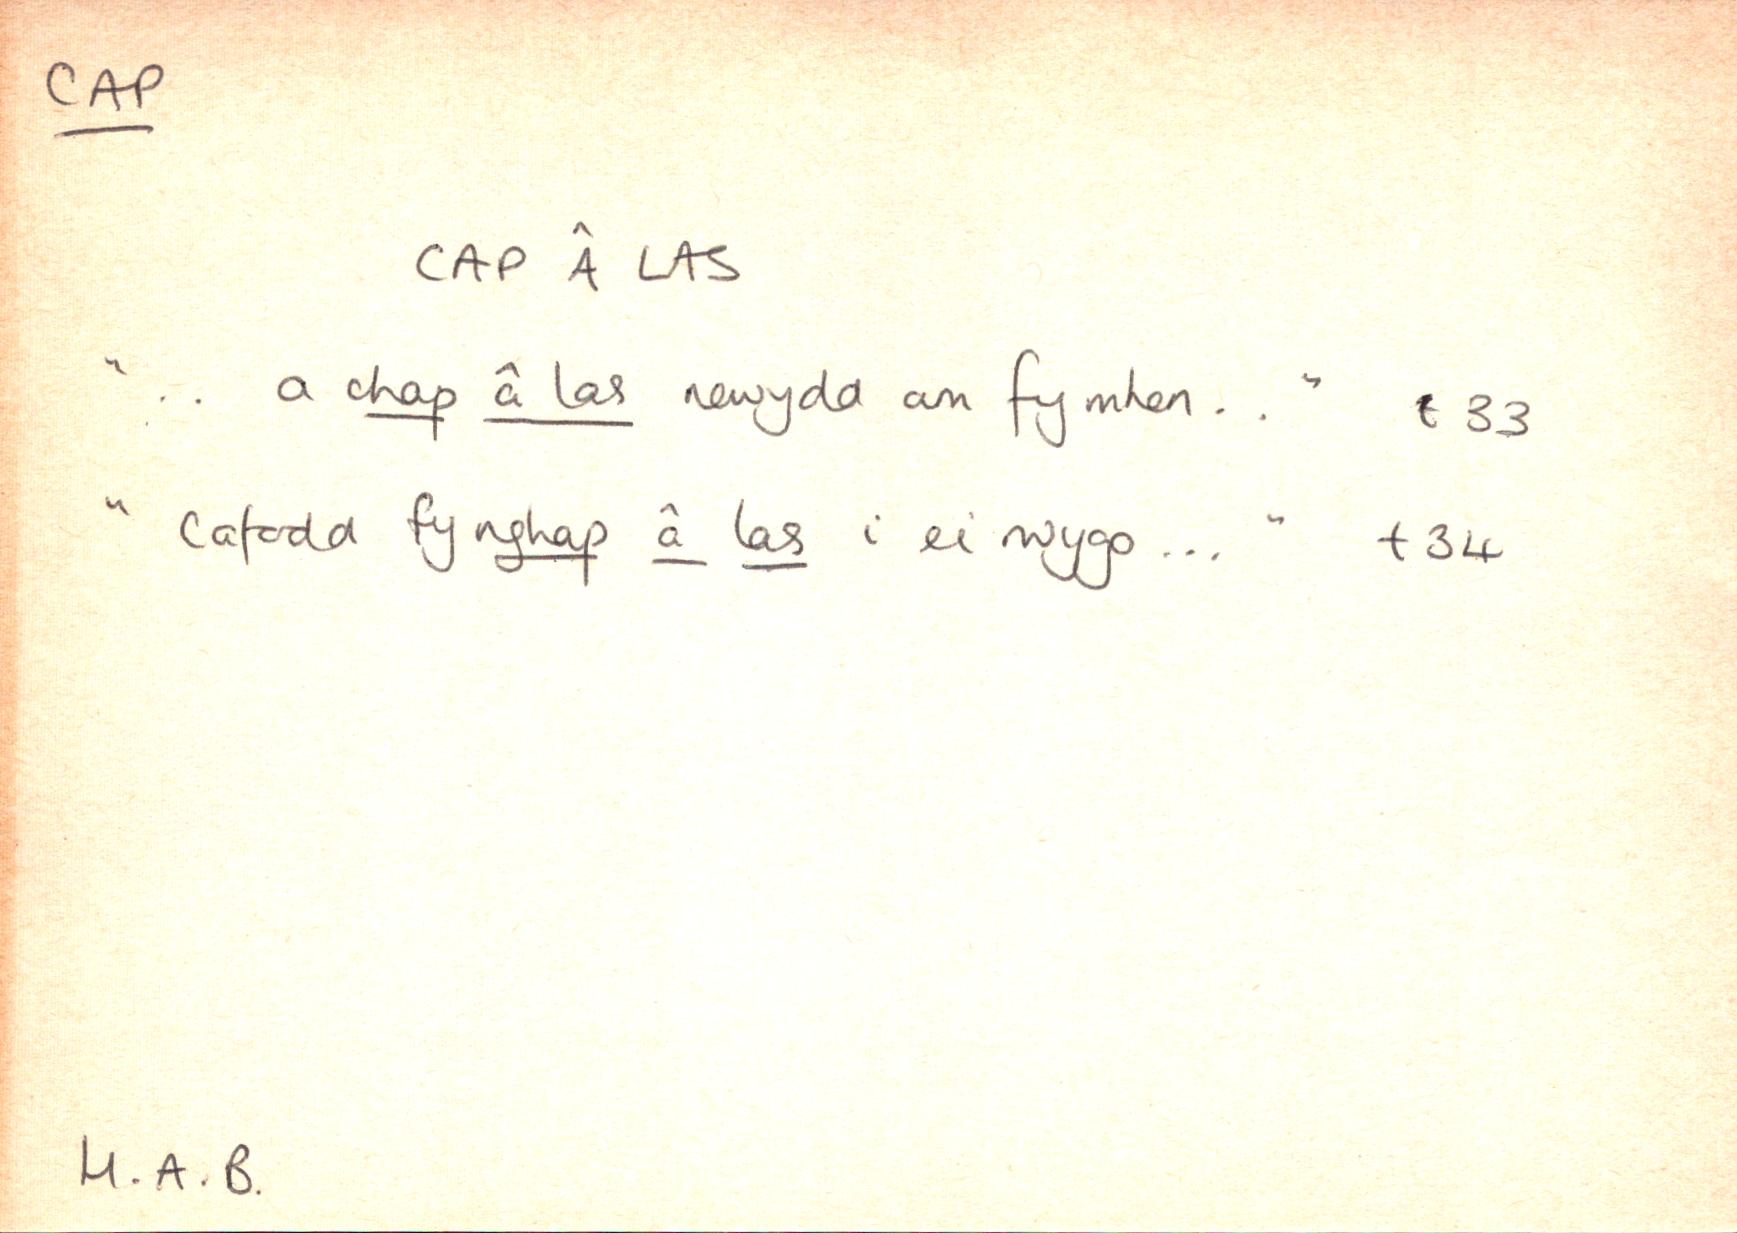 CAP
CAP Â LAS
".. a chap â las newydd am fy mhen.." t 33
"Cafodd fy nghap â las i ei rwygo..." t 34
H.A.B.